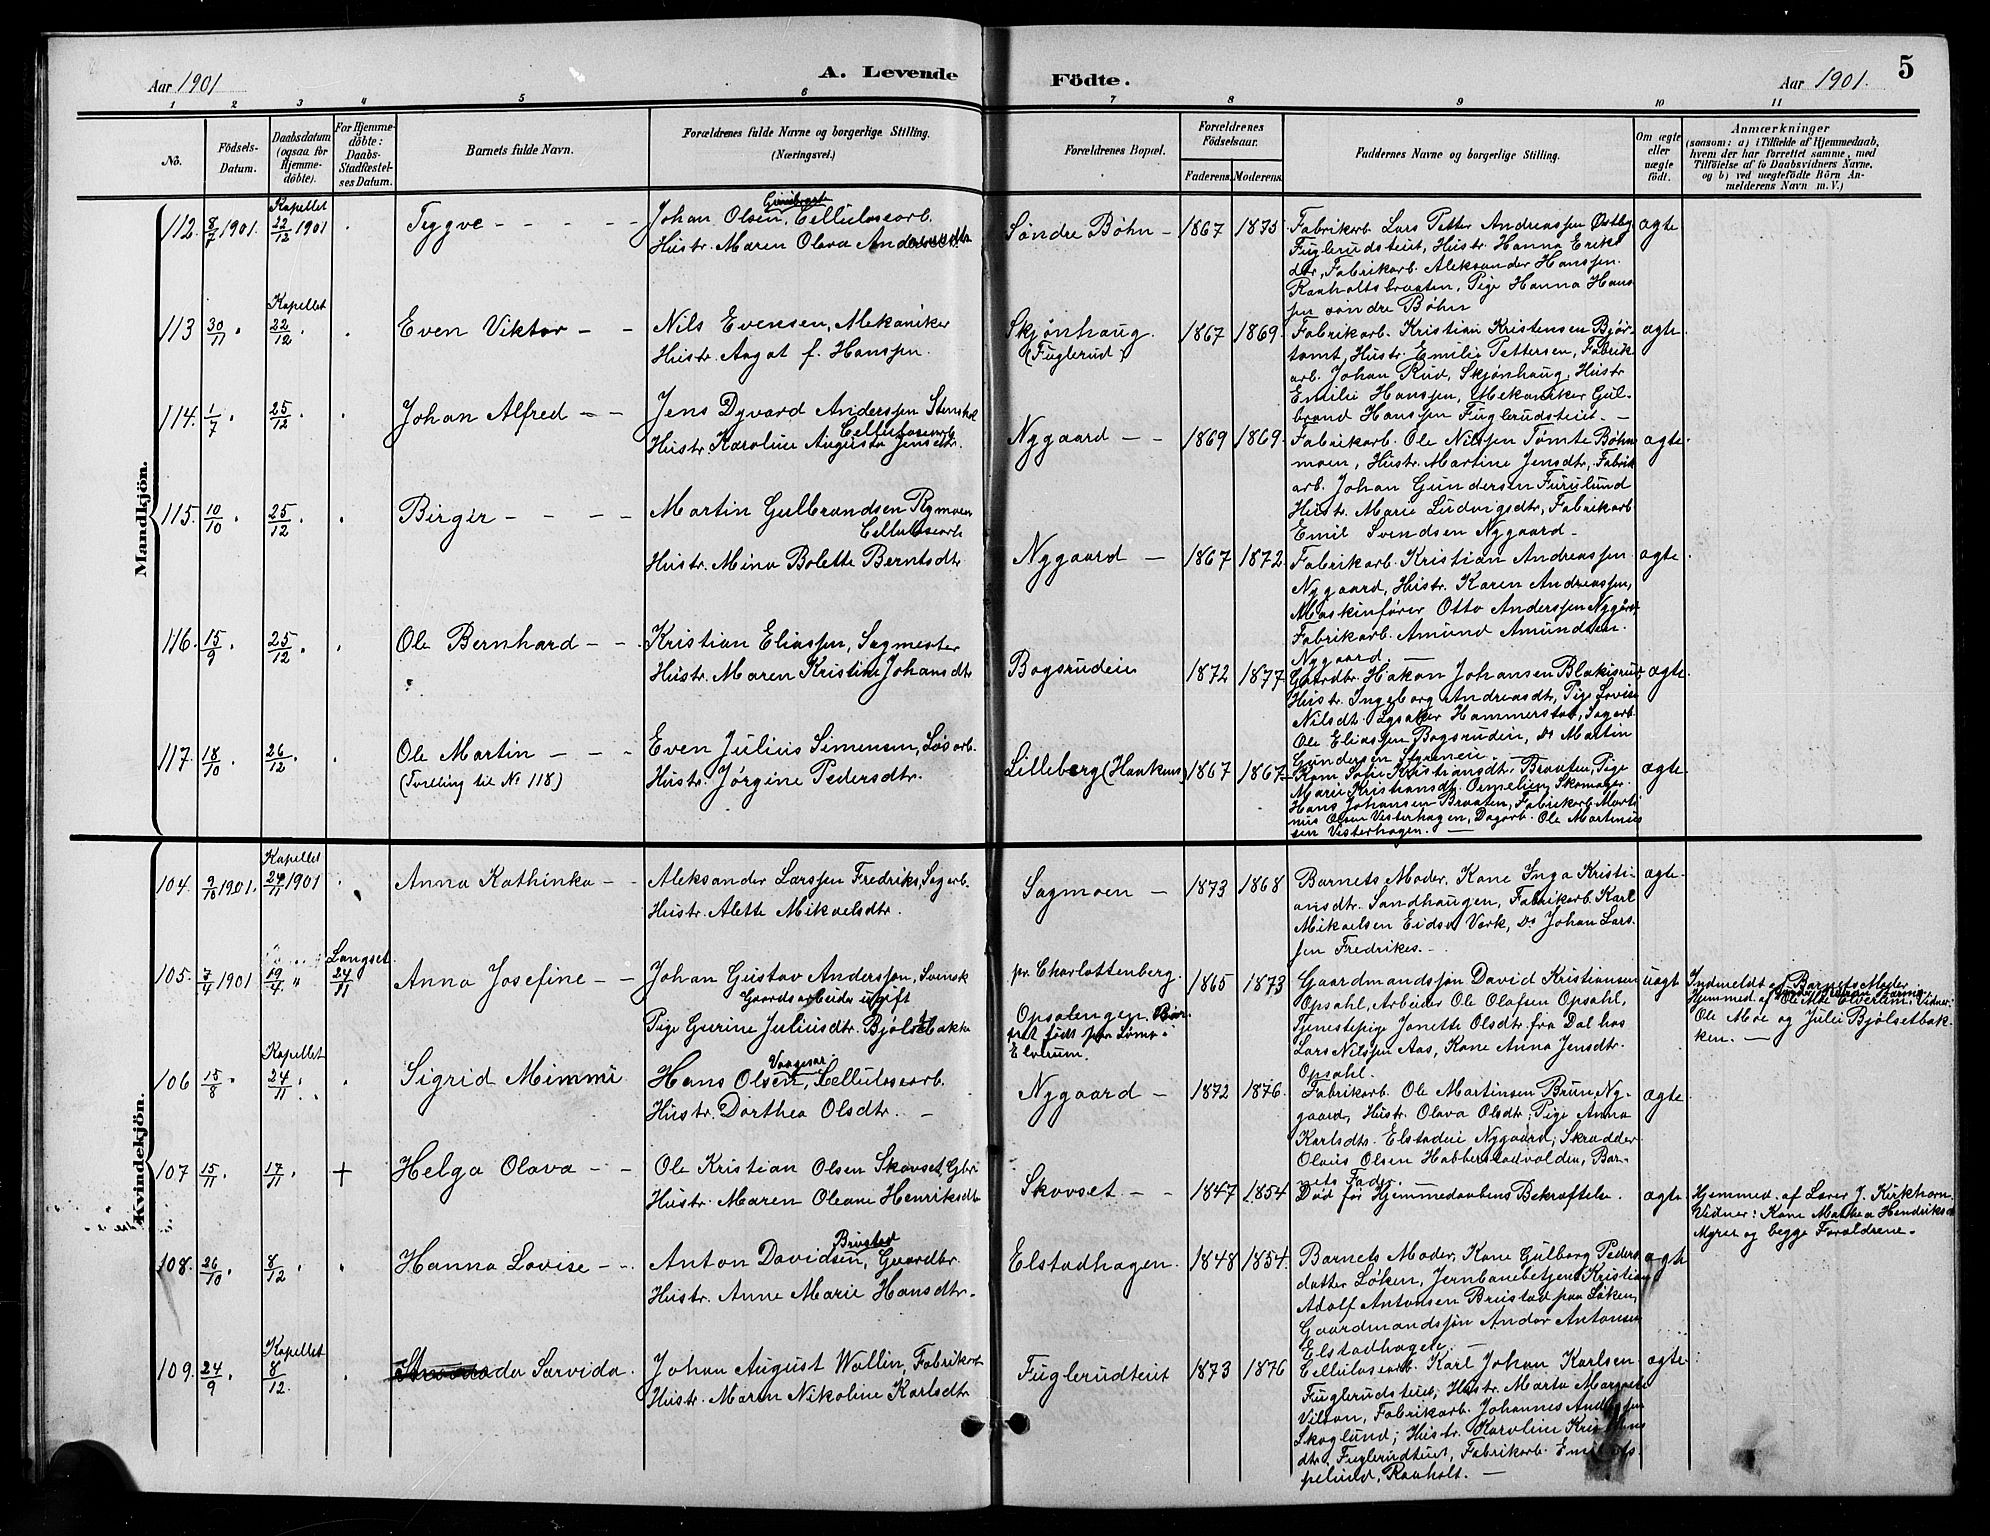 5
Aar 1901
A. Levende Födte.
Aar 1901.
1 2 3 4 5 6 7 8 9 10 11
No.
Födsels-
Datum.
Daabsdatum
(ogsaa for
Hjemme-
döbte).
For Hjemme-
döbte:
Daabs-
Stadfæstel-
ses Datum.
Barnets fulde Navn.
Forældrenes fulde Navne og borgerlige Stilling.
(Næringsvei.)
Forældrenes Bopæl.
Forældrenes
Födselsaar.
Faderens. Moderens.
Faddernes Navne og borgerlige Stilling.
Om ægte
eller
uægte
født.
Anmærkninger
(saasom: a) i Tilfælde af Hjemmedaab,
hvem der har forrettet samme, med
Tilföielse af to Daabsvidners Navne,
og b) ved uægtefödte Börn An-
melderens Navn m. V.)
Mandkjön.
Kapellet
112. 8/7 1901. 22/12 1901 Tryggve - - - -
Johan Olsen, Cellulosearb.
Hustr. Maren Olava Andersdtr
Søndre Bøhn - 1867 1875
Fabrikarb. Lars Petter Andreassen Østby
Fuglerudsteiet, Hustr. Hanna Eriks
dtr, Fabrikarb. Aleksander Hanssen.
Raaholtsbraaten, Pige Hanna Hans
sen søndre Bøhn
ægte
Kapellet
113 30/11 " 22/12 " Even Viktor - -
Nils Evensen, Mekaniker
Hustr. Aagot f. Hanssen.
Skjønhaug.
(Fuglerud)
1867 1869.
Fabrikarb. Kristian Kristensen Bjør-
tomt, Hustr. Emilie Pettersen, Fabrik
arb. Johan Rud, Skjønhaug, Hustr
Emilie Hanssen, Mekaniker Gul-
brand Hanssen Fuglerudsteiet. -
ægte
114. 1/7 " 25/12 " Johan Alfred - -
Jens Dyvard Anderssen
Cellulosearb
Hustr. Karoline Augusta Jensdtr.
Nygaard - - 1869 1869.
Fabrikarb. Ole Nilssen Tømte Bøhn
moen, Hustr. Martine Jensdtr, Fabrik
arb. Johan Gundersen Furulund
Hustr. Marie Ludvigsdtr, Fabrikarb
Emil Svendsen Nygaard -
ægte.
115. 10/10 " 25/12 " Birger - - - -
Martin Gulbrandsen Rymoen
Cellulosearb
Hustr. Mina Bolette Berntsdtr
Nygaard - 1867 1872
Fabrikarb. Kristian Andreassen
Nygaard, Hustr. Karen Andreassen,
Maskinfører Otto Anderssen Nygård
Fabrikarb. Amund Amundsen.
Nygaard. -
ægte.
116. 15/9 " 25/12 " Ole Bernhard - -
Kristian Eliassen, Sagmester
Hustr. Maren Kristine Johansdtr
Bogsrudeie 1872 1877
Gaardbr. Hakon Johansen Blakisrud
Hustr. Ingeborg Andreasdtr, Pige Lovise
Nilsdt. Hammerstad, Sagarb.
Ole Eliassen Bogsrudeie, Do Martin
Gundersen
ægte.
117. 18/10 " 26/12 " Ole Martin - - -
(Tvilling til No 118)
Even Julius Simensen, Løsarb.
Hustr. Jørgine Pedersdtr.
Lilleberg (Haakens) 1867 1867
Kone Sofie Kristiansdtr. Braaten, Pige
Marie Kristiansdtr. Ormelien, Skomager
Hans Johansen Braaten, Fabrikarb. Marti
nius Olsen Vesterhagen, Dagarb. Ole Martinius
sen Vesterhagen. -
ægte
Kvindekjön.
Kapellet
104. 9/10 1901. 24/11 1901 Anna Kathinka - -
Aleksander Larssen Fredriks, Sagarb.
Hustr. Alette Mikaelsdtr.
Sagmoen - 1873 1868
Barnets Moder, Kone Inga Kristi-
ansdtr. Sandhaugen, Fabrikarb. Karl
Mikaelsen Eidsv. Værk, Do Johan Lars
sen Fredrikes. -
ægte.
Langset.
105. 7/4 1901 19/4 " 24/11 Anna Josefine - -
Johan Gustav Anderssen, Svensk
Gaardsarbeider ugift
Pige Gurine Juliusdtr. Bjølset
pr. Charlottenberg.
Opsalengen. Bar-
net født paa Lømo i
Elverum.
1865 1873
Gaardmandssøn David Kristiansen
Opsahl, Arbeider Ole Olafsen Opsahl,
Tjenestepige Jonette Olsdtr. fra Dal hos
Lars Nilssen Aas, Kone Anna Jensdtr.
Opsahl.
uægt
Indmeldt af Barnets Moder
Hjemmed. af Elverum, Vidner:
Ole Moe og Julie Bjølsetbak-
ken. -
Kapellet
106 15/8 " 24/11 " Sigrid Mimmi
Hans Olsen, Cellulosearb.
Hustr. Dorthea Olsdtr. -
Nygaard - 1872 1876
Fabrikarb. Ole Martinsen Brun Ny-
gaard, Hustr. Olava Olsdtr, Pige Anna
Karlsdtr. Elstadeie Nygaard, Skrædder
Olaus Olsen Habberstadvolden, Bar-
nets Fader.
ægte
107 15/11 " 17/11 " + Helga Olava - -
Ole Kristian Olsen Skovset, Gbr
Hustr. Maren Oleane Henriksdtr
Skovset - - 1847 1854
Død før Hjemmedaabens Bekræftelse.
ægte
Hjemmed. af Lærer J. Kirkhorn.
Vidner: Kone Mathea Hendriksdtr
Myrer og begge Forældrene. -
108. 26/10 " 8/12 " Hanna Lovise - -
Brustad
Anton Davidsen, Gaardbr
Hustr. Anne Marie Hansdtr.
Elstadhagen. 1848 1854.
Barnets Moder, Kone Gulborg Peders
datter Løken, Jernbanebetjent Kristian
Adolf Antonsen Brustad paa Løken,
Gaardmandssøn Andor Antonsen
Elstadhagen. -
ægte
Kapellet
109. 24/9 " 8/12 " da Sarvida.
Johan August Wallin, Fabrikarb
Hustr. Maren Nikoline Karlsdtr
Fuglerudteiet 1873 1876
Cellulosearb. Karl Johan Karlsen
Fuglerudsteiet, Hustr. Marta
Fabrikarb. Johannes
Skoglund, Hustr. Karoline
dtr. Fuglerudteiet, Fabrikarb. Emil
pelund, Raaholt. -
ægte